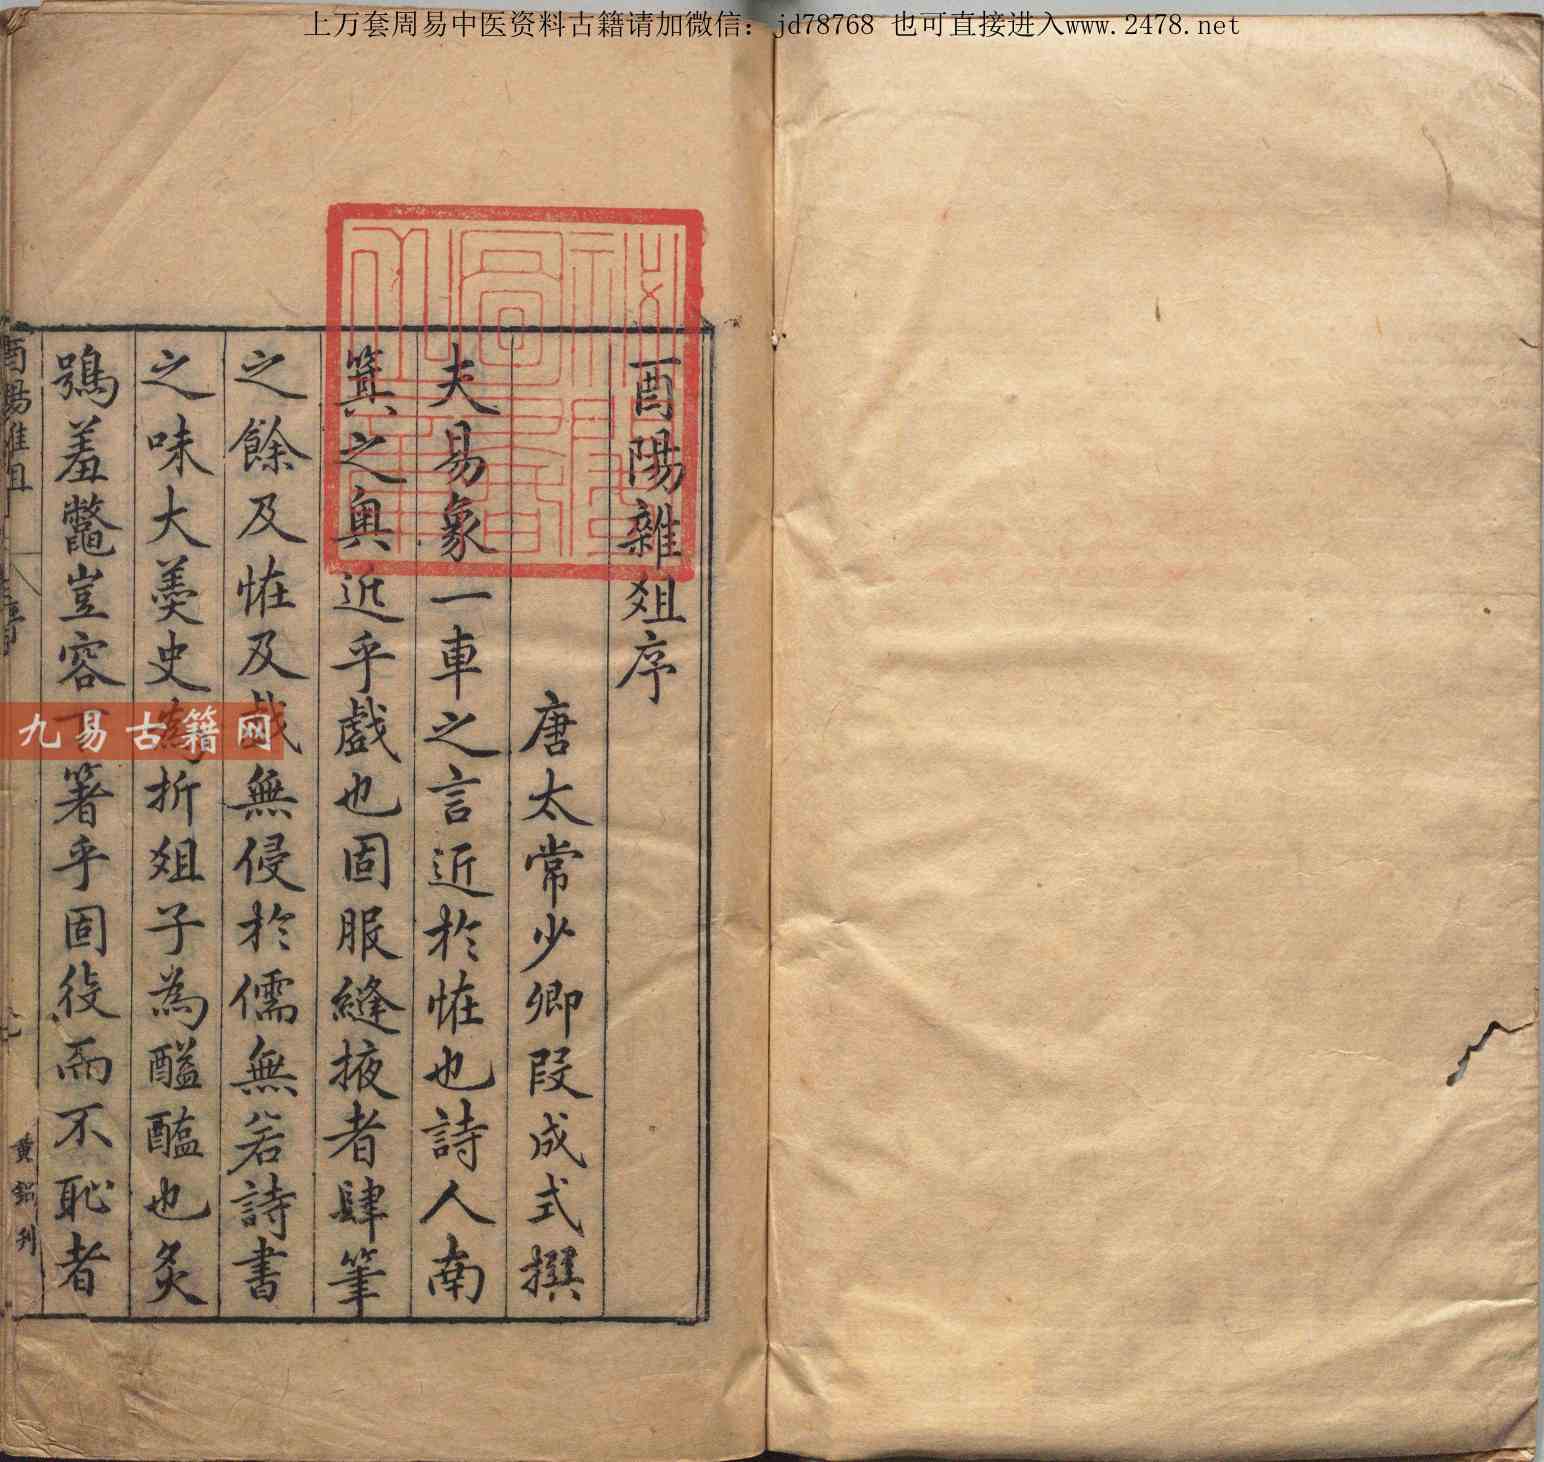 上万套周易中医资料古籍请加微信：jd78768 也可直接进入www.2478.net
酉陽雜俎序
唐太常少卿段成式撰
夫易象一車之言近於恠也詩人南
箕之奥近乎戲也固服縫掖者肆筆
之餘及恠及戲無侵於儒無若詩書
之味大羮史為折俎子為醯醢也炙
鴞羞鼈豈容下箸乎固役而不恥者
酉陽雜俎
序
黄鋁刊
九易古籍网